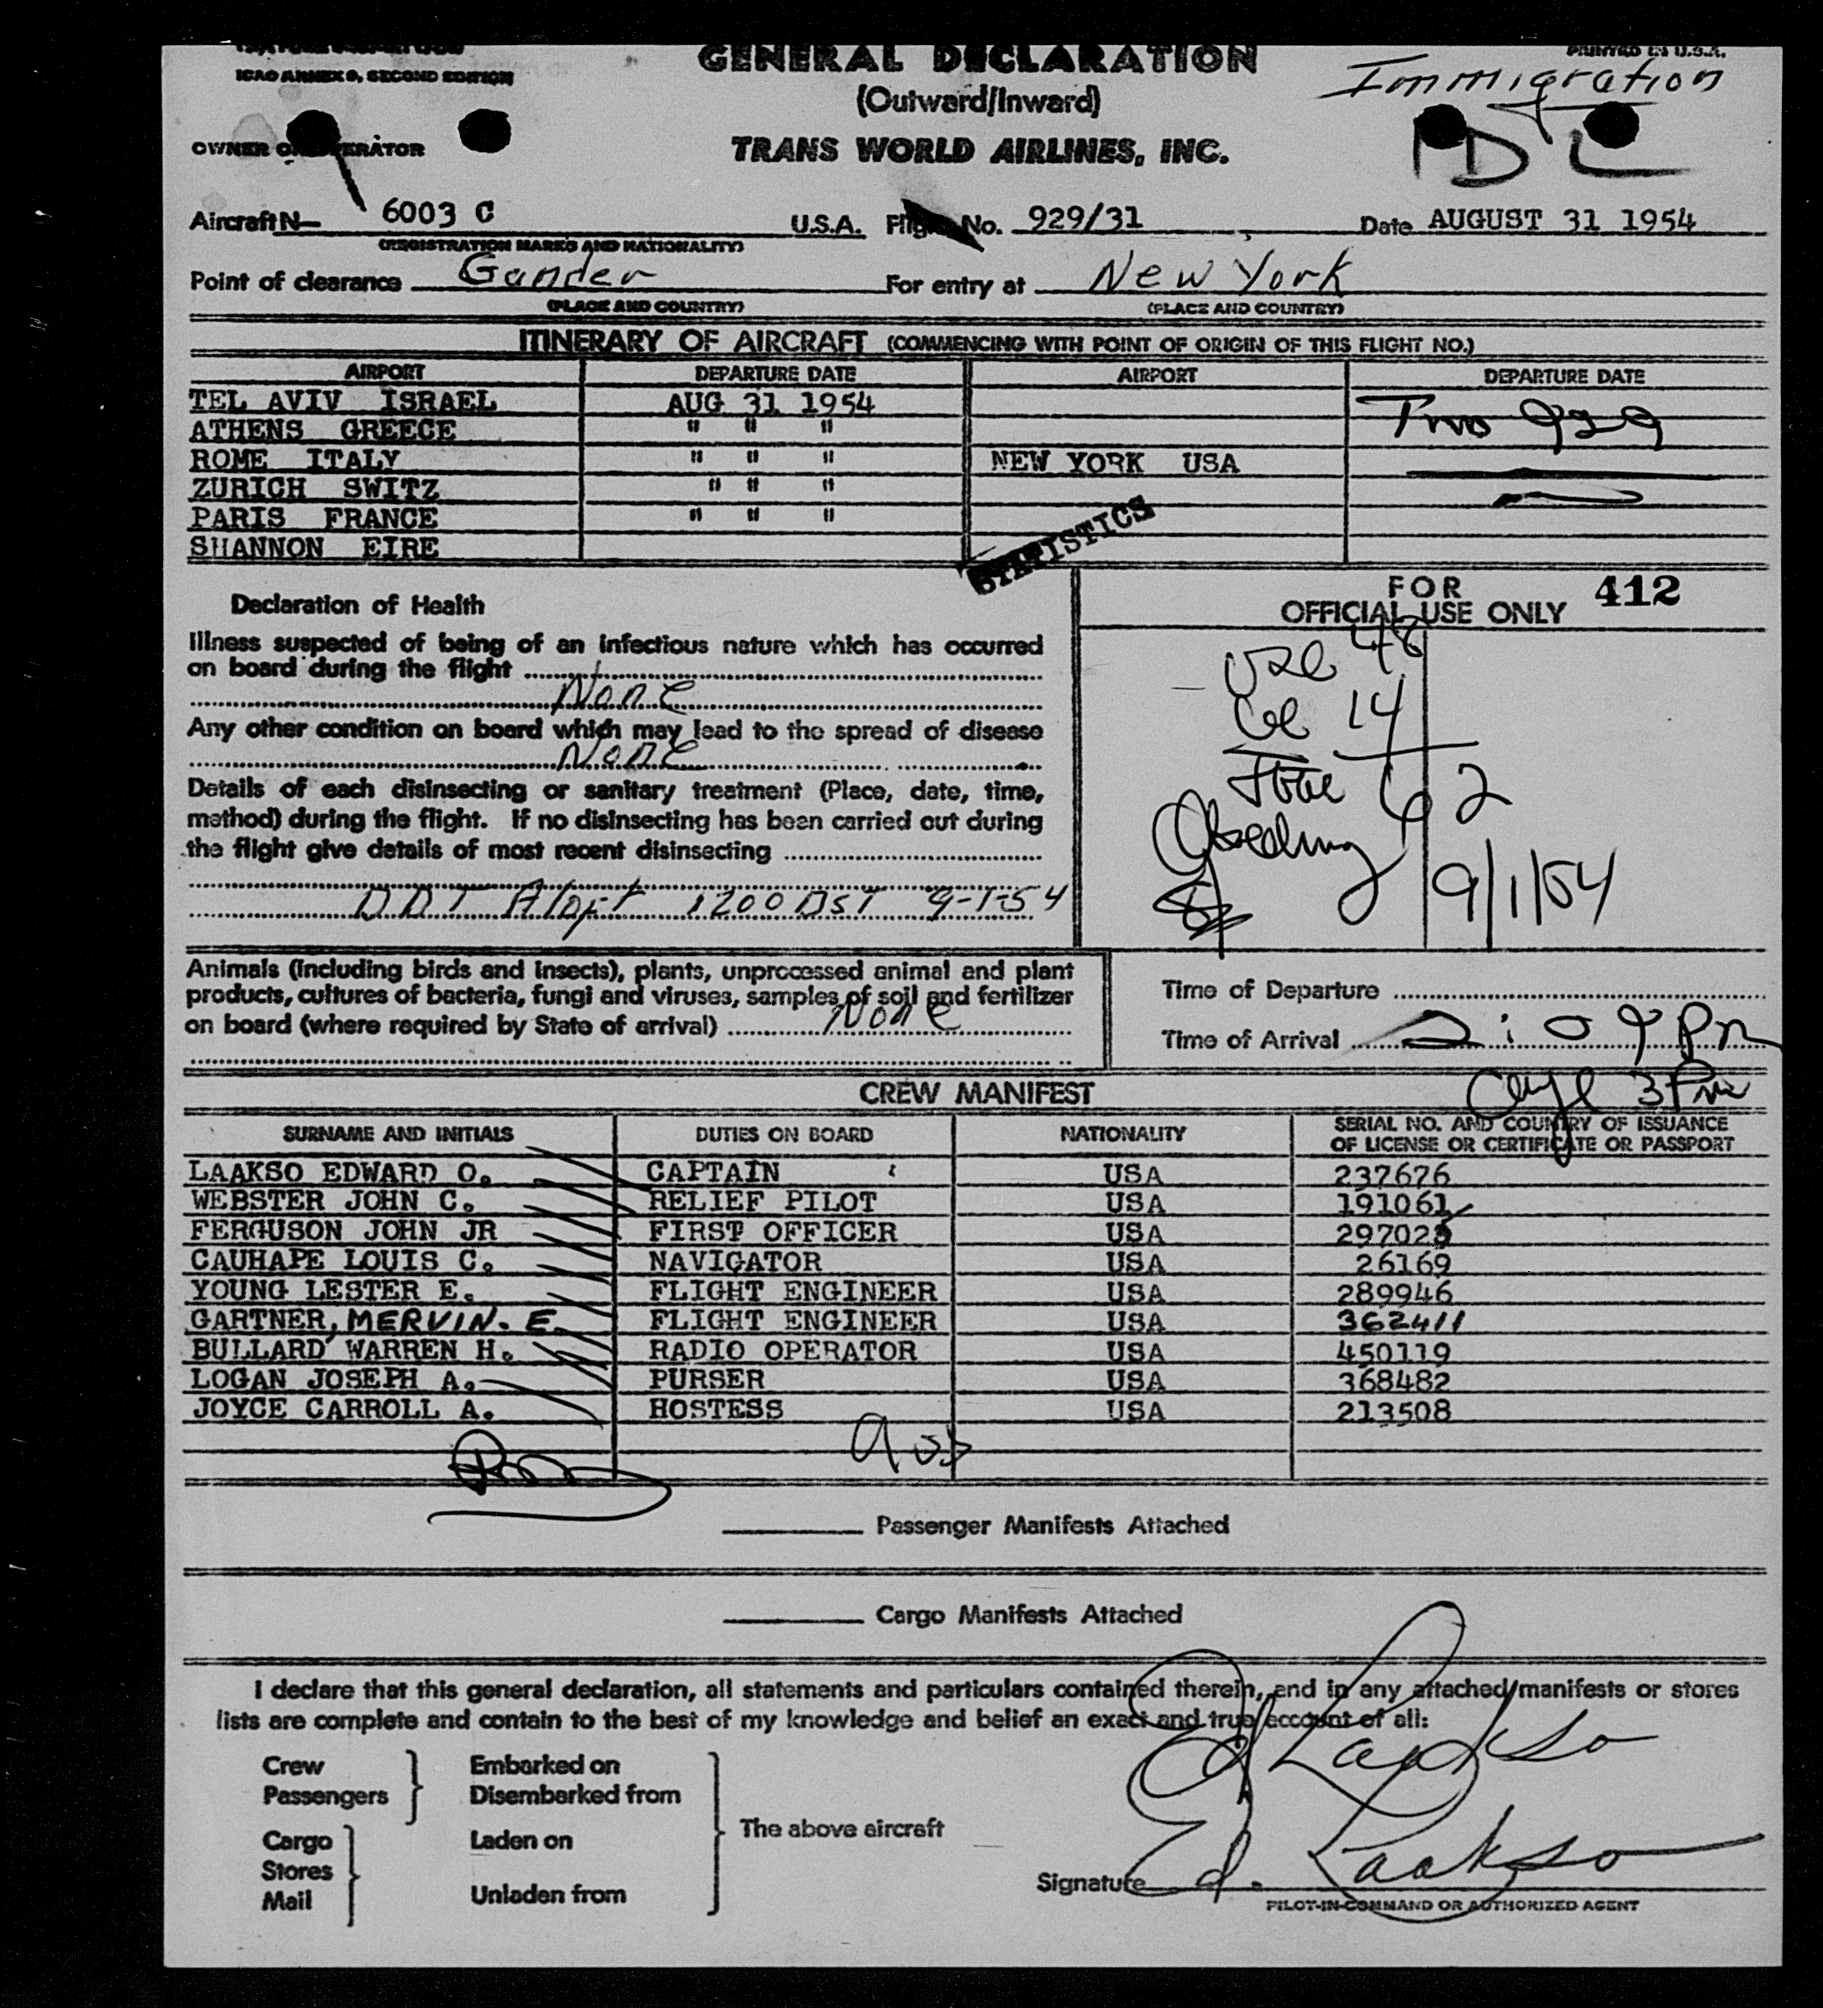 ICAO ANNEX 9, SECOND EDITION
GENERAL DECLARATION
PRINTED IN U.S.A.
(Outward/Inward)
Immigration
OWNER OR OPERATOR
TRANS WORLD AIRLINES, INC.
Aircraft N— 6003 C U.S.A. Flight No. 929/31 Date AUGUST 31 1954
(REGISTRATION MARKS AND NATIONALITY)
Point of clearance Gander For entry at New York
(PLACE AND COUNTRY) (PLACE AND COUNTRY)
ITINERARY OF AIRCRAFT (COMMENCING WITH POINT OF ORIGIN OF THIS FLIGHT NO.)
AIRPORT DEPARTURE DATE AIRPORT DEPARTURE DATE
TEL AVIV ISRAEL AUG 31 1954
ATHENS GREECE " " " 929
ROME ITALY " " " NEW YORK USA
ZURICH SWITZ " " "
PARIS FRANCE " " "
SHANNON EIRE
STATISTICS
FOR 412
OFFICIAL USE ONLY
48
14
62
9/1/54
Declaration of Health
Illness suspected of being of an infectious nature which has occurred
on board during the flight
None
Any other condition on board which may lead to the spread of disease
None
Details of each disinsecting or sanitary treatment (Place, date, time,
method) during the flight. If no disinsecting has been carried out during
the flight give details of most recent disinsecting
DDT 1200 DST 9-1-54
Animals (including birds and insects), plants, unprocessed animal and plant
products, cultures of bacteria, fungi and viruses, samples of soil and fertilizer
on board (where required by State of arrival) None
Time of Departure
Time of Arrival 2:09 Pm
3 Pm
CREW MANIFEST
SURNAME AND INITIALS DUTIES ON BOARD NATIONALITY SERIAL NO. AND COUNTRY OF ISSUANCE
OF LICENSE OR CERTIFICATE OR PASSPORT
LAAKSO EDWARD O. CAPTAIN USA 237676
WEBSTER JOHN C. RELIEF PILOT USA 191061
FERGUSON JOHN JR FIRST OFFICER USA 297023
CAUHAPE LOUIS C. NAVIGATOR USA 26169
YOUNG LESTER E. FLIGHT ENGINEER USA 289946
GARTNER, MERVIN. E. FLIGHT ENGINEER USA 362411
BULLARD WARREN H. RADIO OPERATOR USA 450119
LOGAN JOSEPH A. PURSER USA 368482
JOYCE CARROLL A. HOSTESS USA 213508
Passenger Manifests Attached
Cargo Manifests Attached
I declare that this general declaration, all statements and particulars contained therein, and in any attached manifests or stores
lists are complete and contain to the best of my knowledge and belief an exact and true account of all:
Crew Embarked on
Passengers Disembarked from
The above aircraft
Cargo Laden on
Stores
Mail Unladen from
Ed Laakso
Signature Ed. Laakso
PILOT-IN-COMMAND OR AUTHORIZED AGENT